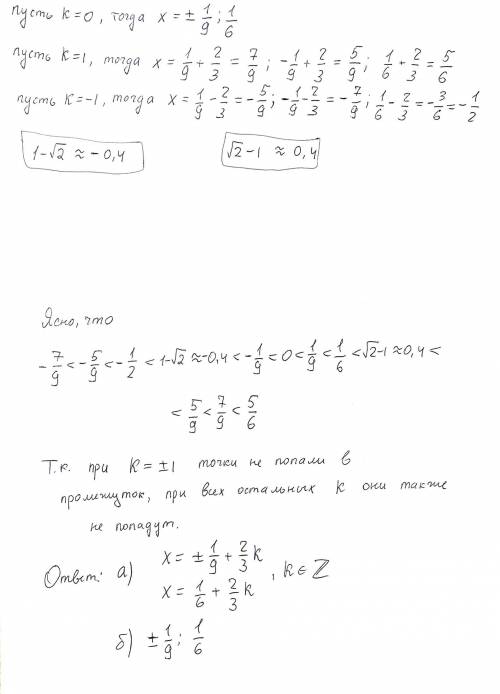 пусть k=0, тогда x = ± 1/9; 1/6
пусть k=1, тогда x = 1/9 + 2/3 = 7/9; -1/9 + 2/3 = 5/9; 1/6 + 2/3 = 5/6
пусть k=-1, тогда x = 1/9 - 2/3 = -5/9; -1/9 - 2/3 = -7/9; 1/6 - 2/3 = -3/6 = -1/2
1-√2 ≈ -0,4 √2-1 ≈ 0,4
Ясно, что
-7/9 < -5/9 < -1/2 < 1-√2 ≈ -0,4 < -1/9 < 0 < 1/9 < 1/6 < √2-1 ≈ 0,4 <
< 5/9 < 7/9 < 5/6
Т.к. при k = ±1 точки не попали в
промежуток, при всех остальных k они также
не попадут.
Ответ: а) x = ± 1/9 + 2/3 k
x = 1/6 + 2/3 k , k ∈ ℤ
б) ± 1/9; 1/6